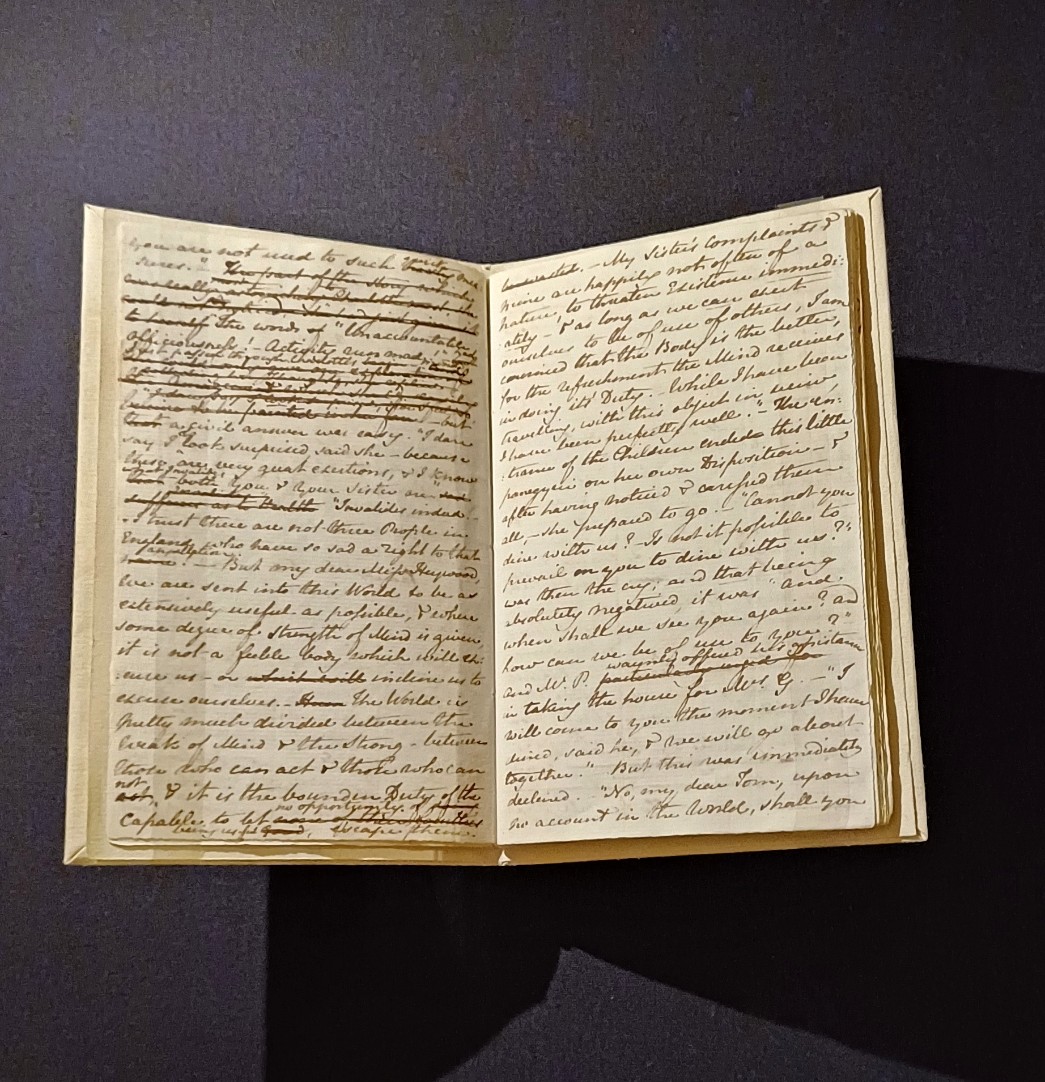 you are not used to such
sures."
to herself. The words of "Unaccountable
officiousness! - Activity run mad!"
but
a civil answer was easy. "I dare
say I look surprised, said she - because
these are very great exertions, & I know
you & your Sister are
"Invalides indeed.-
- I trust there are not three People in
England who have so sad a right to that
appellation! - But my dear Miss Heywood,
we are sent into this World to be as
extensively useful as possible, & where
some degree of Strength of Mind is given,
it is not a feeble body which will ex:
:cuse us - or which will incline us to
excuse ourselves. - The World is
pretty much divided between the
Weak of Mind & the Strong - between
those who can act & those who can
not, & it is the bounden Duty of the
no opportunity of
Capable to let none of their faculties
being useful escape them.
- My Sister's Complaints &
mine are happily not often of a
nature, to threaten Existence immedi:
:ately - & as long as we can exert
ourselves to be of use of others, I am
convinced that the Body is the better,
for the refreshment the Mind receives
in doing its' Duty. - While I have been
travelling, with this object in view,
I have been perfectly well." - The en:
:trance of the Children ended this little
panegyric on her own Disposition - &
after having noticed & caressed them
all, - she prepared to go. - "Cannot you
dine with us? - Is not it possible to
prevail on you to dine with us?"
was then the cry; and that being
absolutely negatived, it was "And
when shall we see you again? and
how can we be of use to you?"
warmly offered his assistance
and Mr. P.
in taking the house for Mrs. G. - "I
will come to you the moment I have
dined, said he, & we will go about
together." But this was immediately
declined. "No, my dear Tom, upon
no account in the World, shall you